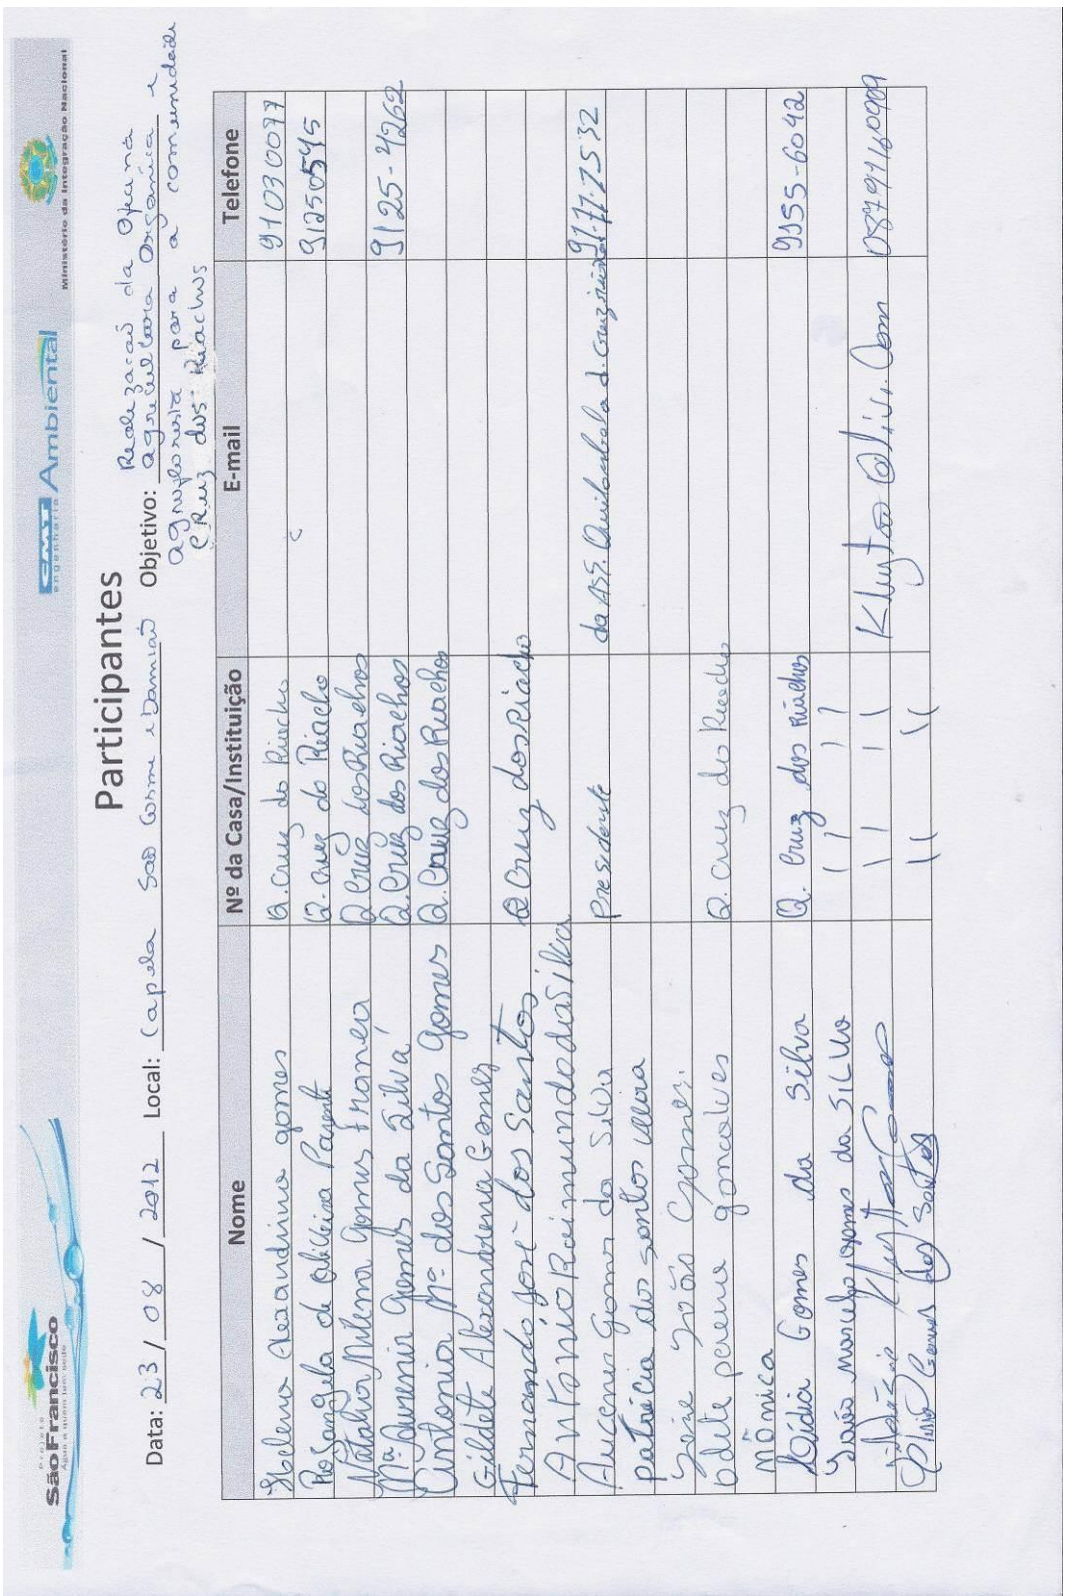 Projeto
São Francisco
Água a quem tem sede
CMT Ambiental
engenharia
Ministério da Integração Nacional
Participantes
Data: 23 / 08 / 2012 Local: Capela São Cosme e Damião Objetivo: Realização da
agricultura orgânica e
agrofloresta para a comunidade
Cruz dos Riachos
Nome Nº da Casa/Instituição E-mail Telefone
Helena Alexandrina gomes Q. Cruz do Riacho 91030077
Rosangela de Oliveira Parente Q. Cruz do Riacho 91250545
Natalia Milena Gomes franca Q Cruz dos Riachos
Mª Aucenir Gomes da Silva Q. Cruz dos Riachos 9125-4262
Antonia Mª dos Santos Gomes Q. Cruz dos Riachos
Gildete Alexandrina Gomes
Fernando José dos Santos Q Cruz dos Riacho
Antonio Raimundo da Silva
Aucenir Gomes da Silva Presidente da ASS. Quilombola d. 9177.7532
patricia dos santos
João Gomes
Odete pereira goncalves Q. Cruz do Riacho
Mônica
Lidia Gomes da Silva Q. Cruz dos Riachos 9955-6042
João marcelo gomes da SILVA 11 11
11 11 08791160909
Gomes dos Santos 11 11